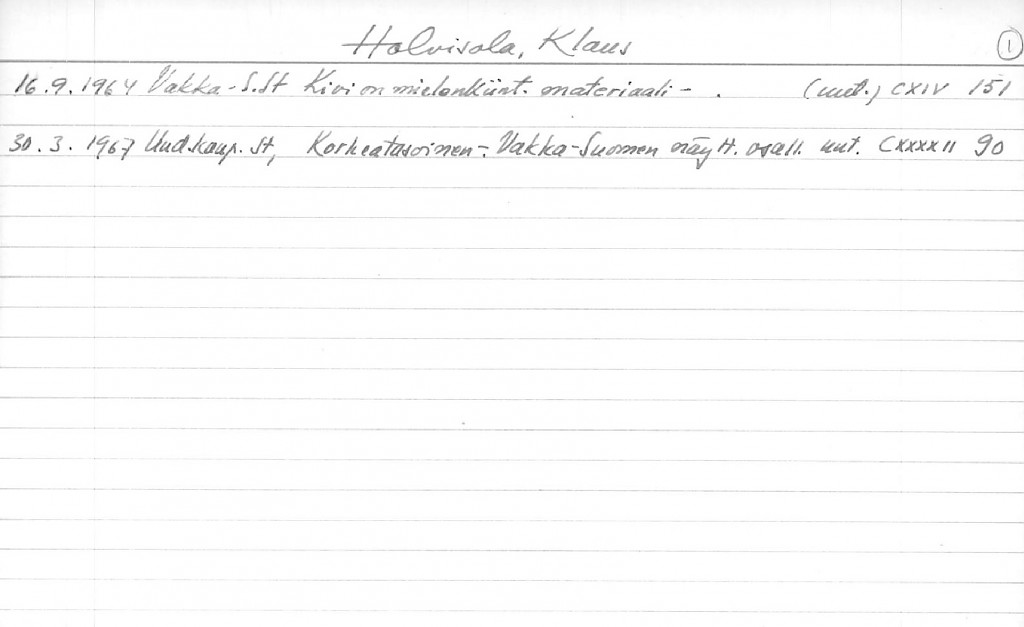 Holvisola, Klaus 1
16.9.1964 Vakka-S.St Kivi on mielenkiint. materiaali - . (uut.) CXIV 151
30.3.1967 Uud.kaup. St, Korkeatasoinen - Vakka-Suomen näytt. osall. uut. CXXXXII 90